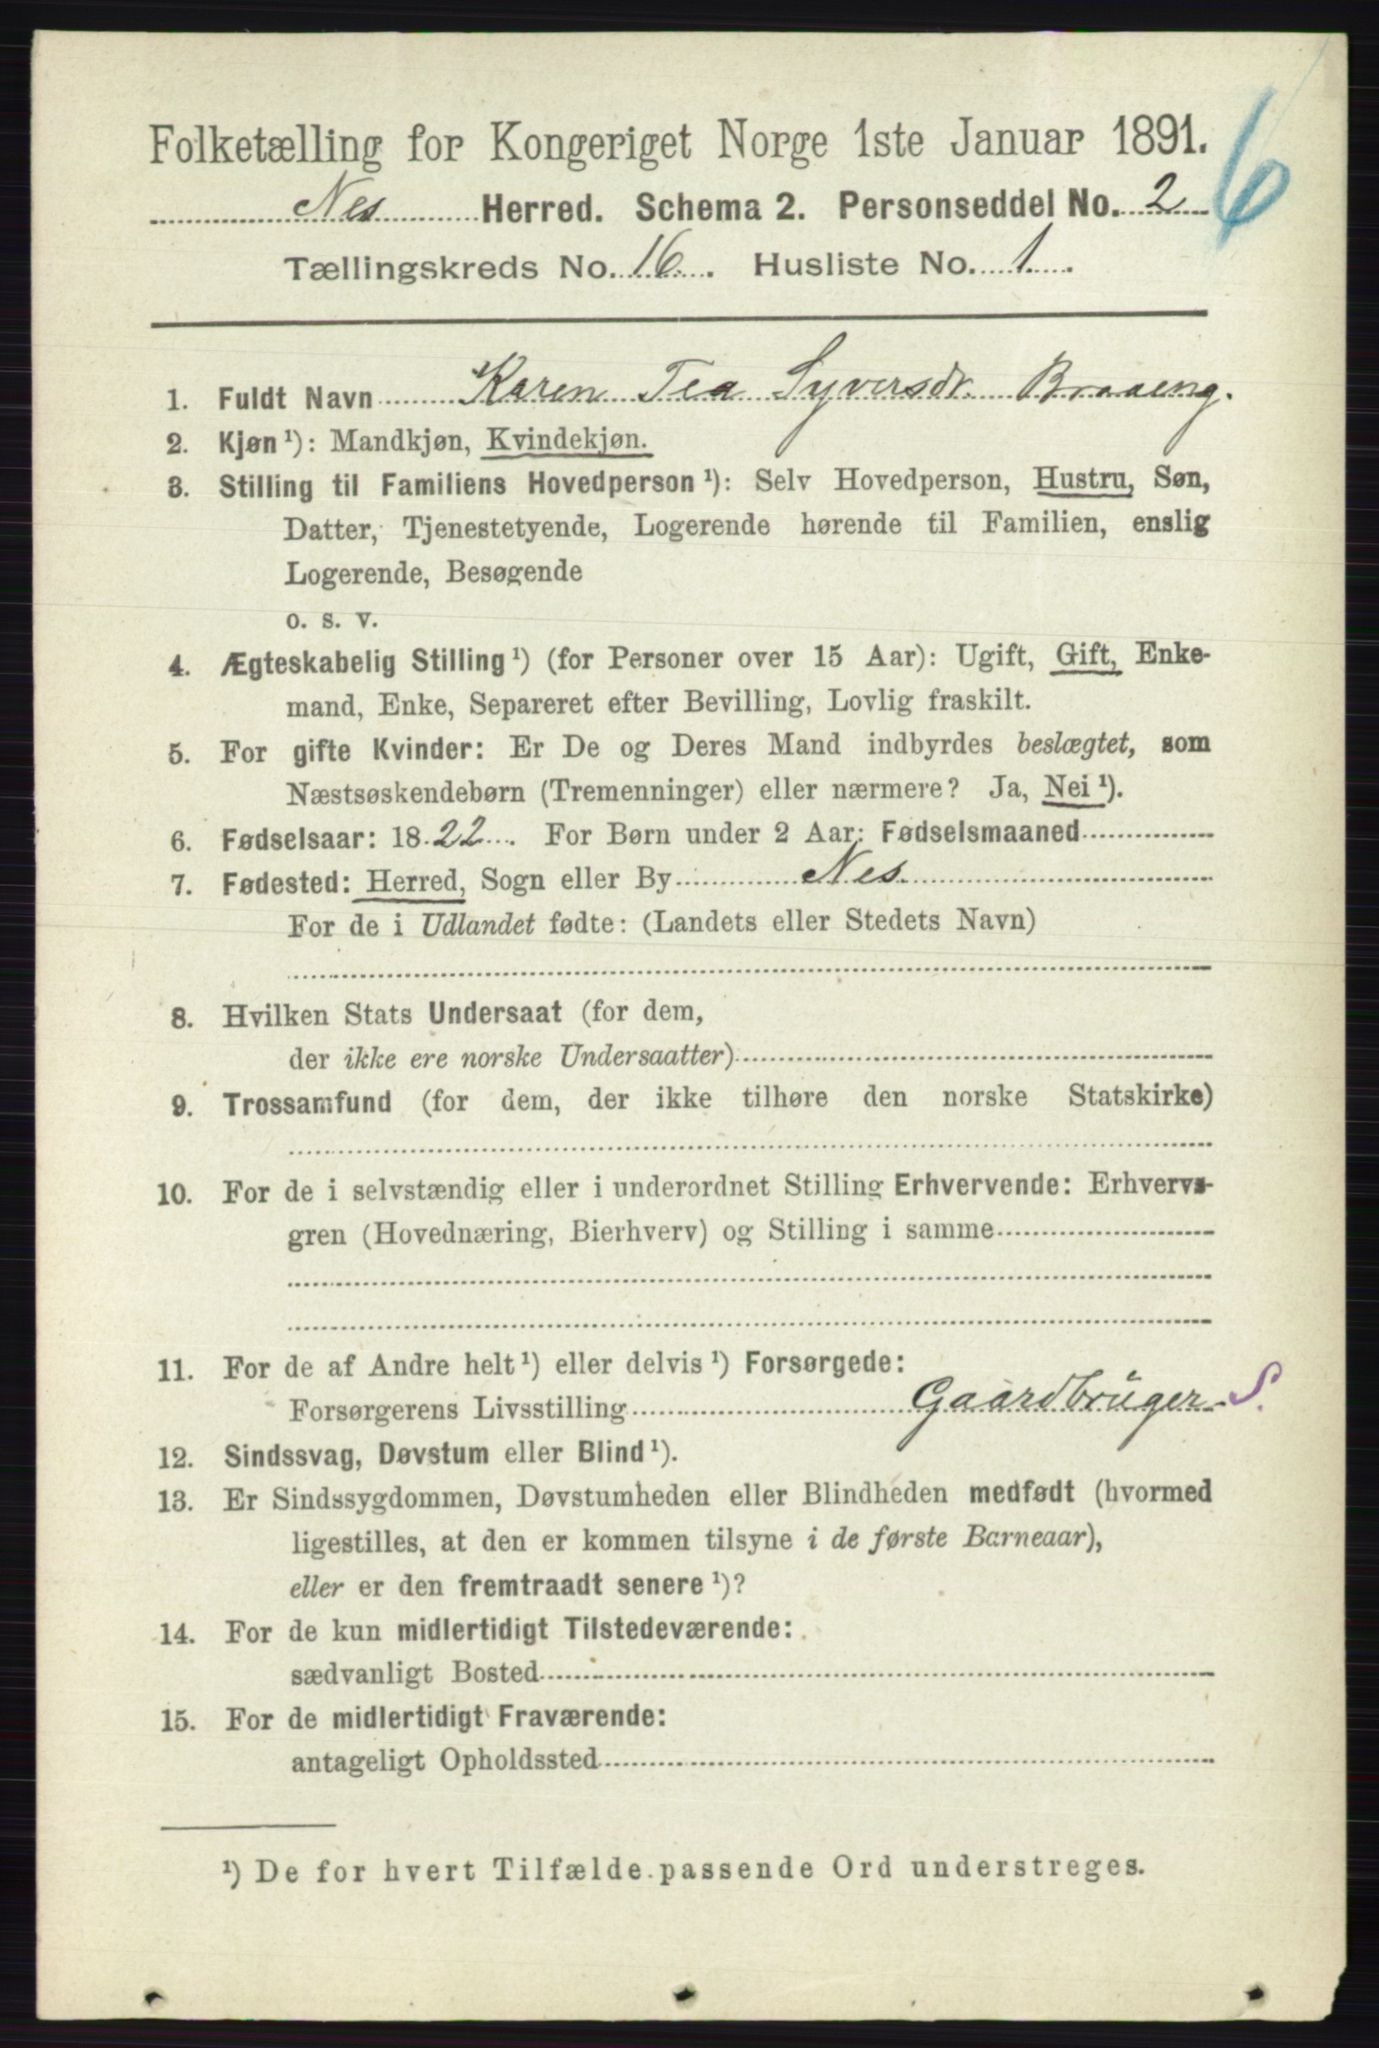 Folketælling for Kongeriget Norge 1ste Januar 1891.
6
Nes Herred. Schema 2. Personseddel No. 2
Tællingskreds No. 16. Husliste No. 1.
1. Fuldt Navn Karen Tea Syversdr. Braaeng.
2. Kjøn ¹): Mandkjøn, Kvindekjøn.
3. Stilling til Familiens Hovedperson ¹): Selv Hovedperson, Hustru, Søn,
Datter, Tjenestetyende, Logerende hørende til Familien, enslig
Logerende, Besøgende
o. s. v.
4. Ægteskabelig Stilling ¹) (for Personer over 15 Aar): Ugift, Gift, Enke-
mand, Enke, Separeret efter Bevilling, Lovlig fraskilt.
5. For gifte Kvinder: Er De og Deres Mand indbyrdes beslægtet, som
Næstsøskendebørn (Tremenninger) eller nærmere? Ja, Nei ¹).
6. Fødselsaar: 1822. For Børn under 2 Aar: Fødselsmaaned
7. Fødested: Herred, Sogn eller By Nes.
For de i Udlandet fødte: (Landets eller Stedets Navn)
8. Hvilken Stats Undersaat (for dem,
der ikke ere norske Undersaatter)
9. Trossamfund (for dem, der ikke tilhøre den norske Statskirke)
10. For de i selvstændig eller i underordnet Stilling Erhvervende: Erhvervs-
gren (Hovednæring, Bierhverv) og Stilling i samme
11. For de af Andre helt ¹) eller delvis ¹) Forsørgede:
Forsørgerens Livsstilling Gaardbrüger S.
12. Sindssvag, Døvstum eller Blind ¹).
13. Er Sindssygdommen, Døvstumheden eller Blindheden medfødt (hvormed
ligestilles, at den er kommen tilsyne i de første Barneaar),
eller er den fremtraadt senere ¹)?
14. For de kun midlertidigt Tilstedeværende:
sædvanligt Bosted
15. For de midlertidigt Fraværende:
antageligt Opholdssted
¹) De for hvert Tilfælde passende Ord understreges.